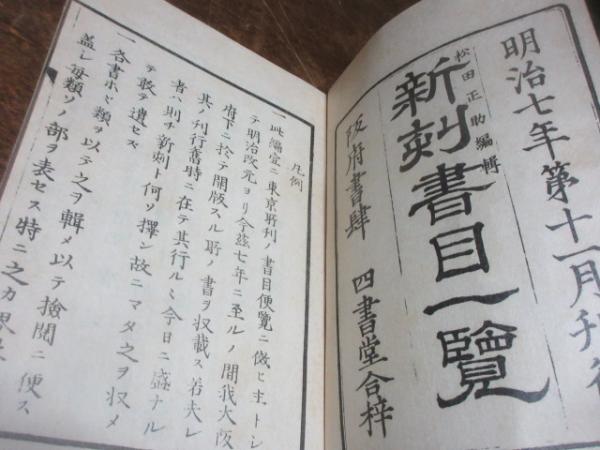 明治七年第十一月刊行
松田正助編輯
新刻書目一覧
阪府書肆 四書堂合梓
凡例
一此編宜ニ東京所刊ノ書目便覧ニ倣ヒ主トシ
テ明治改元ヨリ今茲七年ニ至ルノ間我大阪
府下ニ於テ開版スル所ノ書ヲ収載ス若夫レ
其ノ刊行舊時ニ在テ其行ルヽ今日ニ盛ナル
者ハ則チ新刻ト何ソ擇ン故ニマタ之ヲ収メ
テ敢テ遺セス
一各書ホヾ類ヲ以テ之ヲ輯メ以テ撿閲ニ便ス
蓋シ毎類ソノ部ヲ表セス特ニ之カ界